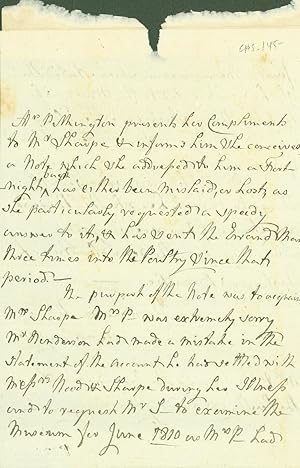 CHS.145-
Mrs Pilkington presents her Compliments
to Mr Sharpe & informs him she conceives
a Note which she addressed to him a Fort-
night back has either been mislaid, or lost, as
she particularly requested a speedy
answer to it, & has sent the Errand Man
three times into the Poultry since that
period.—
The purport of the Note was to acquaint
Mr Sharpe Mrs P— was extremely sorry
Mr Henderson had made a mistake in the
Statement of the Account he had settled with
Messrs Hood & Sharpe during her Illness
and to request Mr S— to examine the
Museum for June 1810 as Mrs P. had